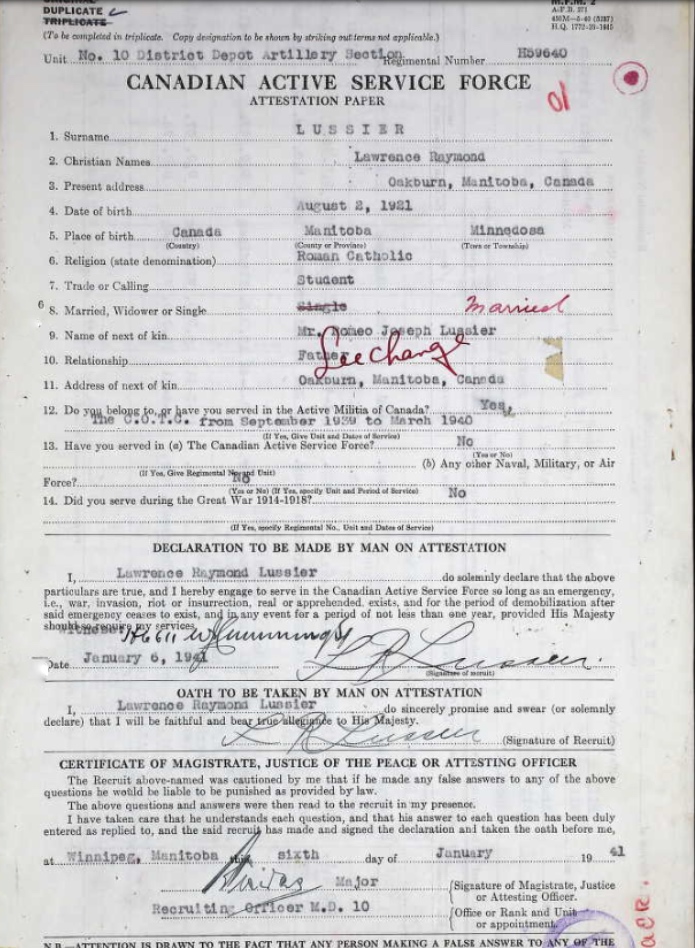 DUPLICATE
TRIPLICATE
M.F.M. 2
A.F.B. 271
H.Q. 1772-39-1645
(To be completed in triplicate. Copy designation to be shown by striking out terms not applicable.)
Unit No. 10 District Depot Artillery Section Regimental Number H59640
CANADIAN ACTIVE SERVICE FORCE
ATTESTATION PAPER
1. Surname LUSSIER
2. Christian Names Lawrence Raymond
3. Present address Oakburn, Manitoba, Canada
4. Date of birth August 2, 1921
5. Place of birth Canada Manitoba Minnedosa
(Country) (County or Province) (Town or Township)
6. Religion (state denomination) Roman Catholic
7. Trade or Calling Student
6 8. Married, Widower or Single Single Married
9. Name of next of kin Mr. Romeo Joseph Lussier
10. Relationship Father See Change
11. Address of next of kin Oakburn, Manitoba, Canada
12. Do you belong to, or have you served in the Active Militia of Canada? Yes,
The C.O.T.C. from September 1939 to March 1940
(If Yes, Give Unit and Dates of Service)
13. Have you served in (a) The Canadian Active Service Force? No
(Yes or No)
(b) Any other Naval, Military, or Air
(If Yes, Give Regimental No. and Unit)
Force? No
(Yes or No) (If Yes, specify Unit and Period of Service)
14. Did you serve during the Great War 1914-1918? No
(If Yes, specify Regimental No., Unit and Dates of Service)
DECLARATION TO BE MADE BY MAN ON ATTESTATION
I, Lawrence Raymond Lussier do solemnly declare that the above
particulars are true, and I hereby engage to serve in the Canadian Active Service Force so long as an emergency,
i.e., war, invasion, riot or insurrection, real or apprehended, exists, and for the period of demobilization after
said emergency ceases to exist, and in any event for a period of not less than one year, provided His Majesty
should so require my services.
Witness:
Date January 6, 1941 L R Lussier
(Signature of recruit)
OATH TO BE TAKEN BY MAN ON ATTESTATION
I, Lawrence Raymond Lussier do sincerely promise and swear (or solemnly
declare) that I will be faithful and bear true allegiance to His Majesty.
L R Lussier (Signature of Recruit)
CERTIFICATE OF MAGISTRATE, JUSTICE OF THE PEACE OR ATTESTING OFFICER
The Recruit above-named was cautioned by me that if he made any false answers to any of the above
questions he would be liable to be punished as provided by law.
The above questions and answers were then read to the recruit in my presence.
I have taken care that he understands each question, and that his answer to each question has been duly
entered as replied to, and the said recruit has made and signed the declaration and taken the oath before me,
at Winnipeg, Manitoba this sixth day of January 19 41
Major
Signature of Magistrate, Justice
or Attesting Officer.
Recruiting Officer M.D. 10
Office or Rank and Unit
or appointment.
N.B.—ATTENTION IS DRAWN TO THE FACT THAT ANY PERSON MAKING A FALSE ANSWER TO ANY OF THE